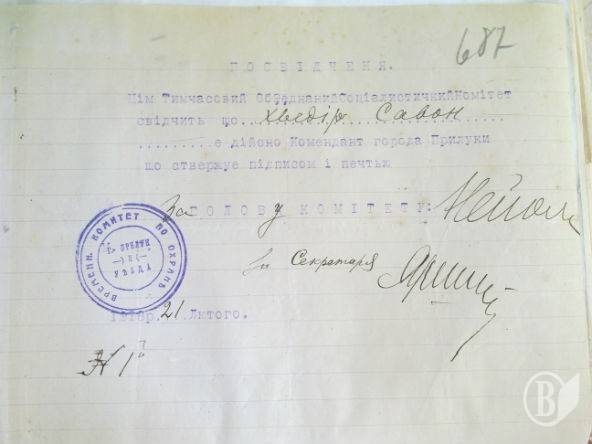 687
ПОСВІДЧЕНЯ.
Цім Тимчасовий ОбъеднанийСоціалистичнийКомітет
свідчить що...Хведір Савон
.........е дійоно Комендант города Прилуки
що ствержує підписом і печтью
За ГОЛОВУ КОМІТЕТУ:
За Секретаря
ВРЕМЕНН. КОМИТЕТ ПО ОХРАНѢ
Г. ПРИЛУК
—) И (—
УѢЗДА
1918р. 21 Лютого.
N 1
В